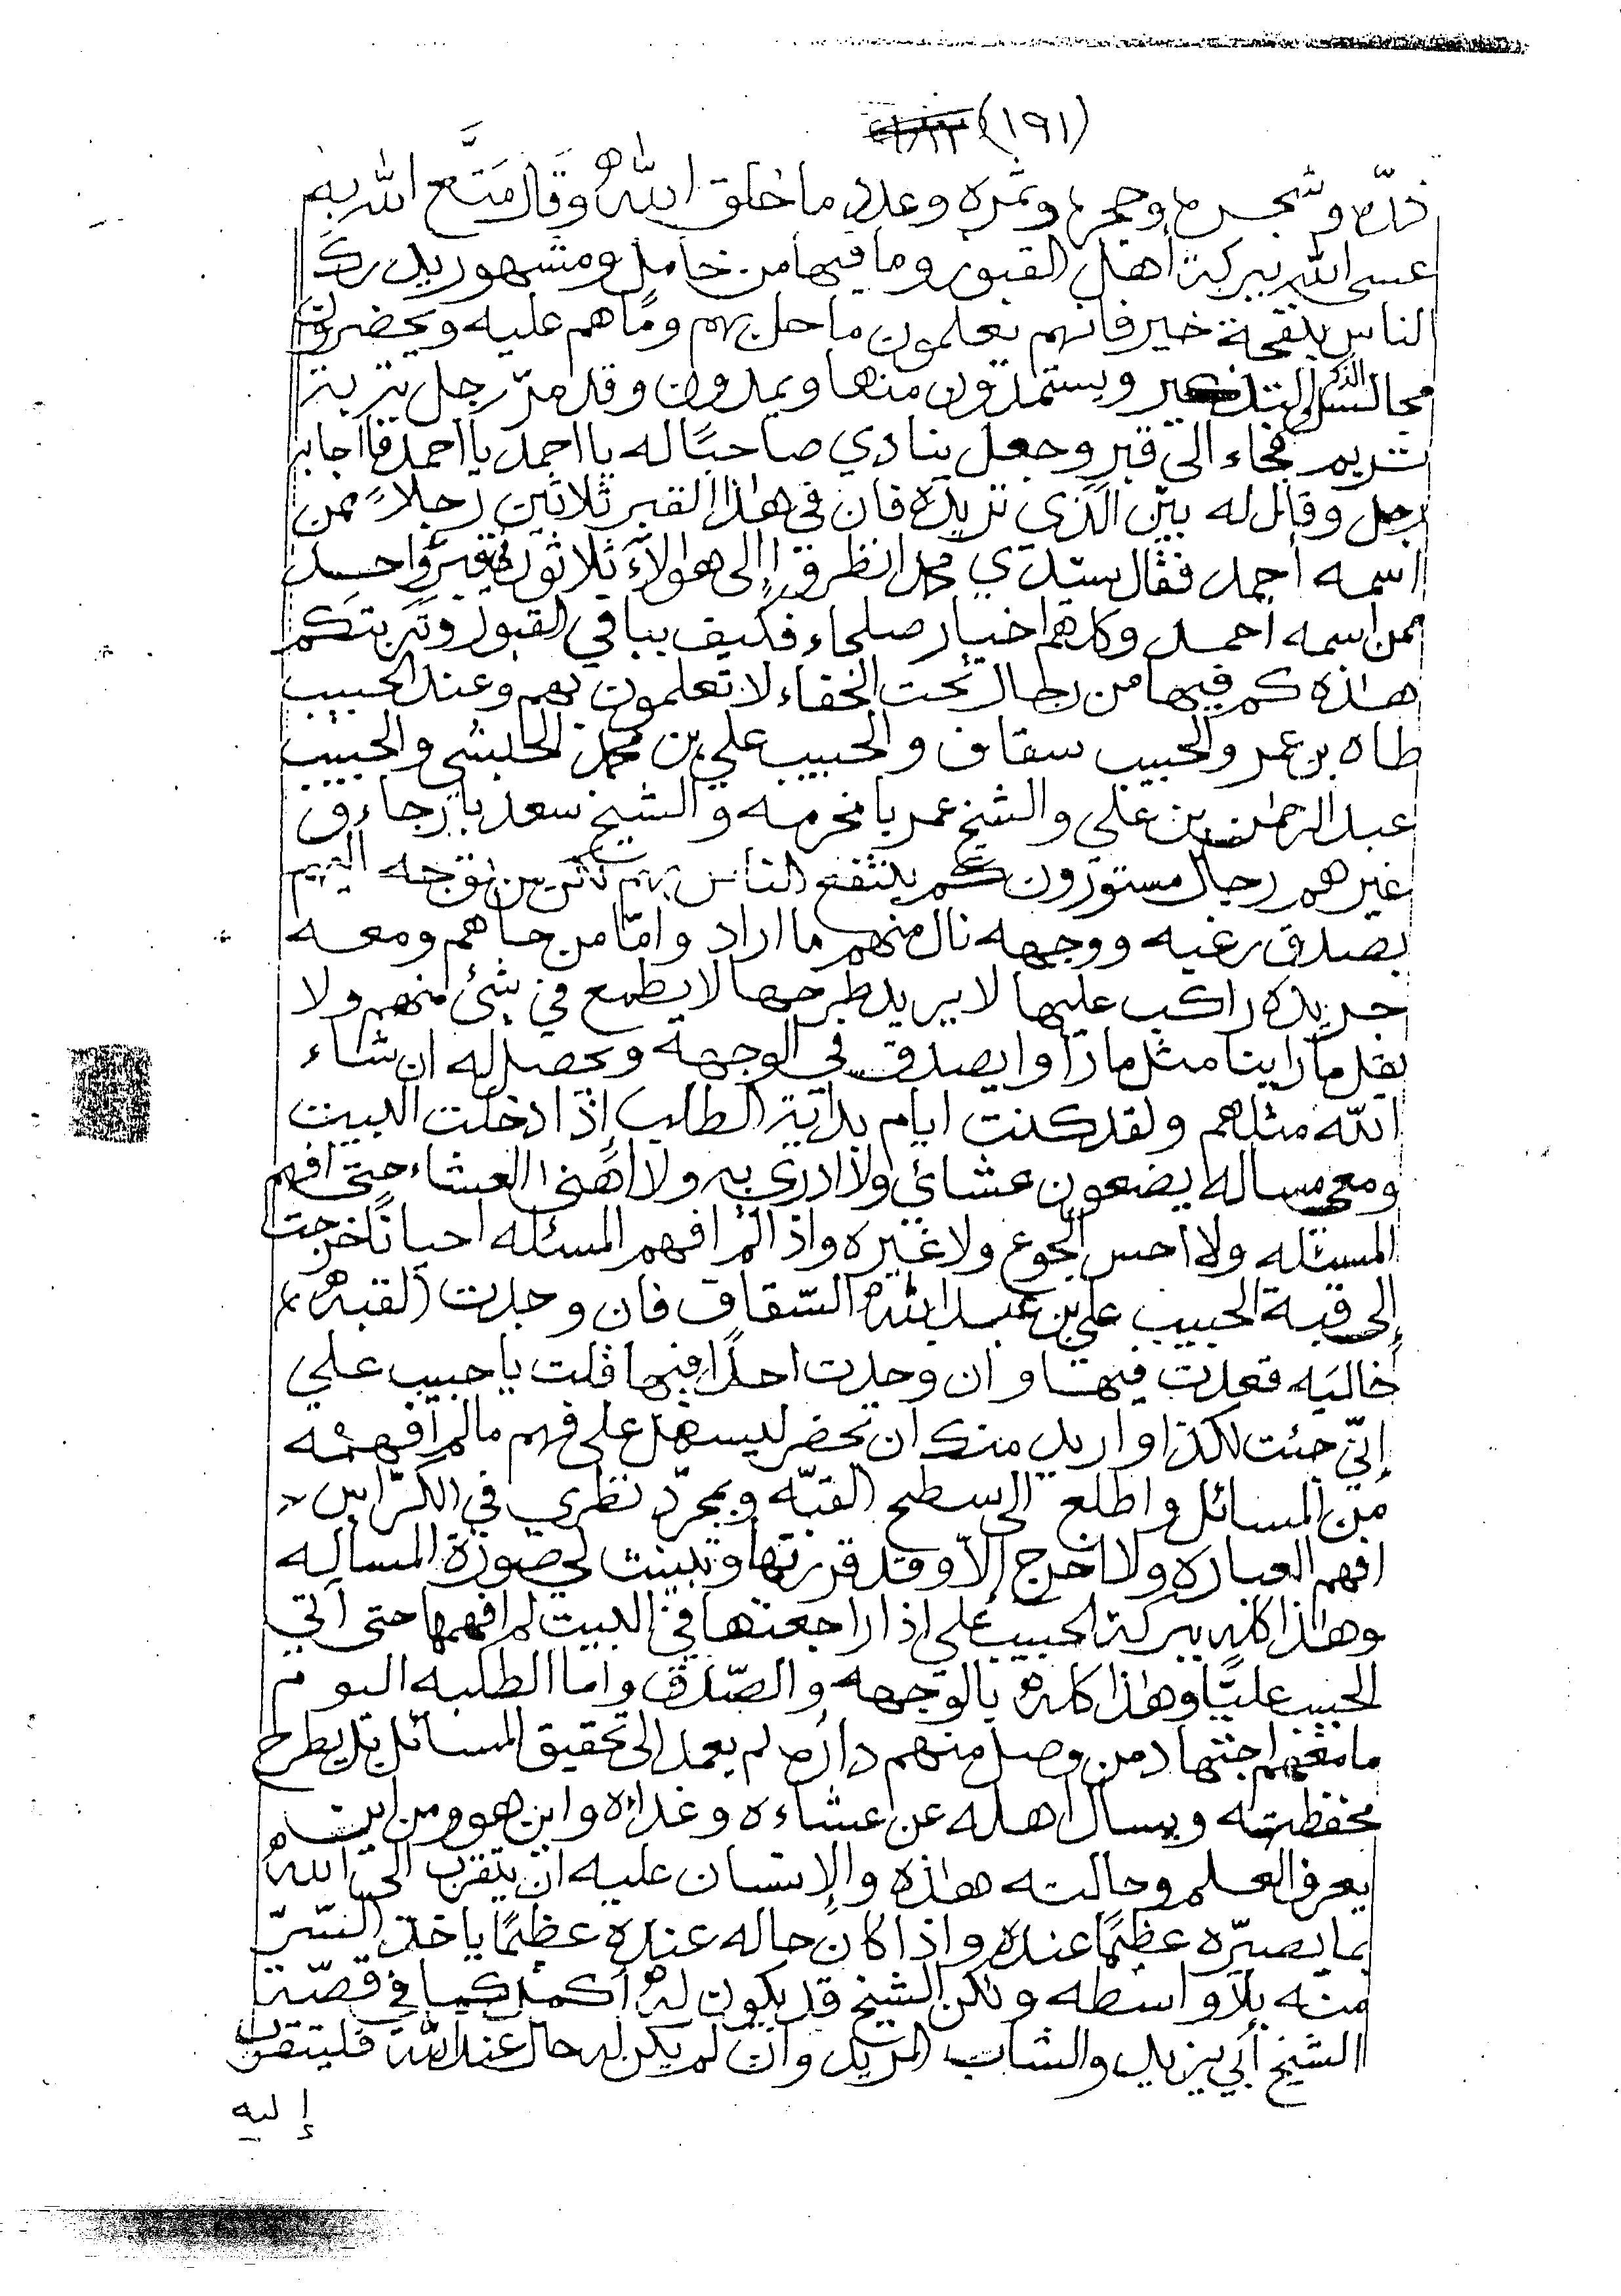 (١٩١)
ذره وشجره وحجره وثمره وعدد ما خلق اللهُ وقال مَتَّع الله به
عسى الله ببركة أهل القبور وما فيها من خامل ومشهور يدرك
الناس بنفحة خير فانهم يعلمون ما حل بهم وما هم عليه ويحضرون
مجالس الذكر التذكير ويستمدون منها ويمدون وقد مرّ رجل بتربة
تريم فجاء الى قبر وجعل ينادي صاحبًا له يا احمد يا احمد فاجابه
رجل وقال له بيّن الذي تريده فان في هذا القبر ثلاثين رجلاً ممن
اسمه أحمد فقال سيّدي محمد انظروا إلى هولاء ثلاثون في قبر واحد
ممن اسمه احمد وكلهم اخيار صلحاء فكيف بباقي القبور وتربتكم
هاذه كم فيها من رجال تحت الخفاء لا تعلمون بهم وعند الحبيب
طاه بن عمر والحبيب سقاف والحبيب علي بن محمد الحبشي والحبيب
عبد الرحمن بن علي والشيخ عمر بامخرمه والشيخ سعد بارجاء و
غيرهم رجال مستورون كم ينتفع الناس بهم لكن من توجه اليهم
بصدق رغبه ووجهه نال منهم ما اراد وامّا من جاهم ومعه
جريده راكب عليها لا يريد طرحها لا يطمع في شئ منهم ولا
يقل ما راينا مثل ما راوا يصدق في الوجهة ويحصل له ان شاء
الله مثلهم ولقد كنت ايام بداية الطلب إذا دخلت البيت
ومعي مساله يضعون عشائي ولا ادري به ولا اهنى العشاء حتى افهم
المسئله ولا احس الجوع ولا غيره واذا لم افهم المسئله احيانًا خرجت
إلى قبة الحبيب علي بن عبد الله السّقاف فان وجدت القبه
خاليه قعدت فيها وان وجدت احدًا فيها قلت يا حبيب علي
إنّي جئت لكذا واريد منك ان تحضر ليسهل علي فهم مالم افهمه
من المسائل واطلع الى سطح القبّه وبمجرّد نظري في الكرّاس
افهم العباره ولا اخرج إلاّ وقد قررتها وتبينت لي صورة المساله
وهاذا كله ببركة الحبيب علي اذا راجعتها في البيت لم افهمها حتى آتي
الحبيب عليًّا وهاذا كله بالوجهه والصّدق واما الطلبه اليوم
ما معهم اجتهاد من وصل منهم داره لم يعمد الى تحقيق المسائل بل يطرح
محفظته ويسال اهله عن عشاءه وغداه واين هو ومن اين
يعرف العلم وحالته هاذه والإنسان عليه ان يتقرب الى اللهُ
بما يصيّره عظيمًا عنده واذا كان حاله عنده عظيمًا ياخذ السّرّ
منه بلا واسطه ولكن الشيخ قد يكون له أكمل كما في قصّة
الشيخ أبي يزيد والشاب المريد وان لم يكن له حال عند الله فليتقرب
إليه